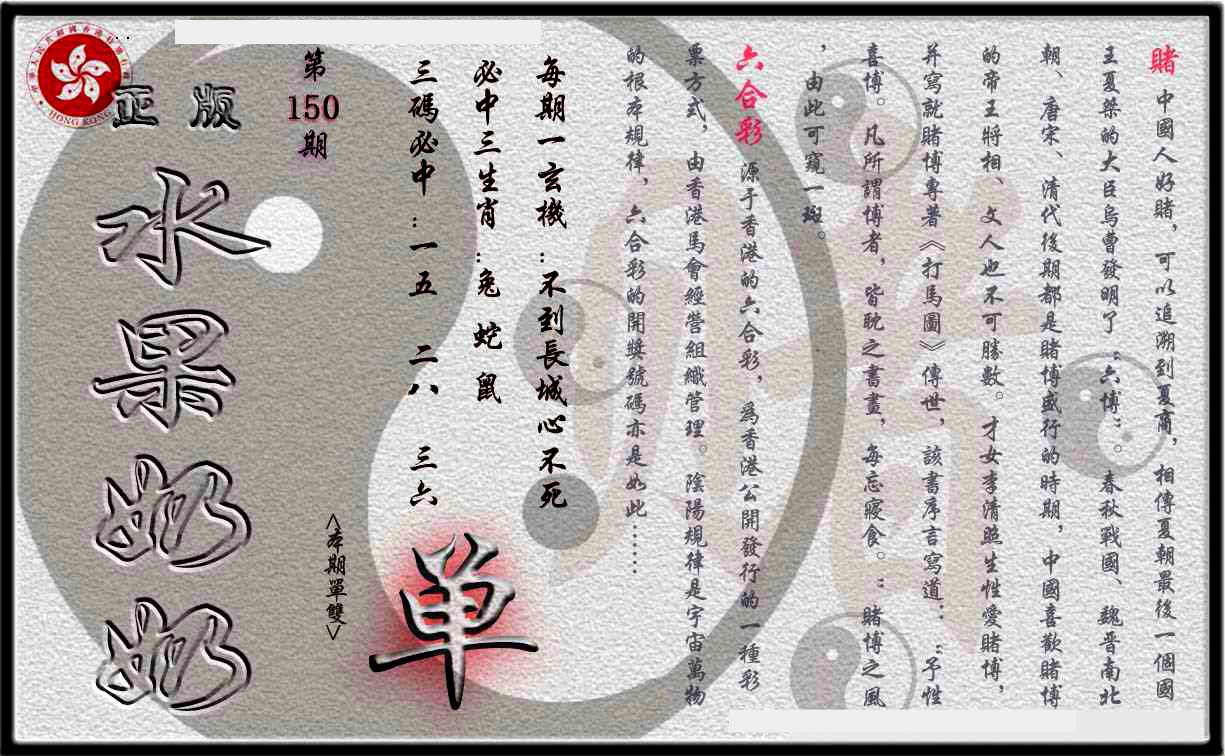 賭 中國人好賭，可以追溯到夏商，相傳夏朝最後一個國
王夏桀的大臣烏曹發明了“六博”。春秋戰國、魏晋南北
朝、唐宋、清代後期都是賭博盛行的時期，中國喜歡賭博
的帝王將相、文人也不可勝數。才女李清照生性愛賭博，
并寫就賭博專著《打馬圖》傳世，該書序言寫道：“予性
喜博。凡所謂博者，皆耽之書晝，每忘寢食。”賭博之風
，由此可窺一斑。
六合彩 源于香港的六合彩，為香港公開發行的一種彩
票方式，由香港馬會經營組織管理。陰陽規律是宇宙萬物
的根本規律，六合彩的開獎號碼亦是如此……
每期一玄機：不到長城心不死
必中三生肖：兔 蛇 鼠
三碼必中：一五 二八 三六
单
<本期單雙>
第150期
正版
水果奶奶
HONG KONG